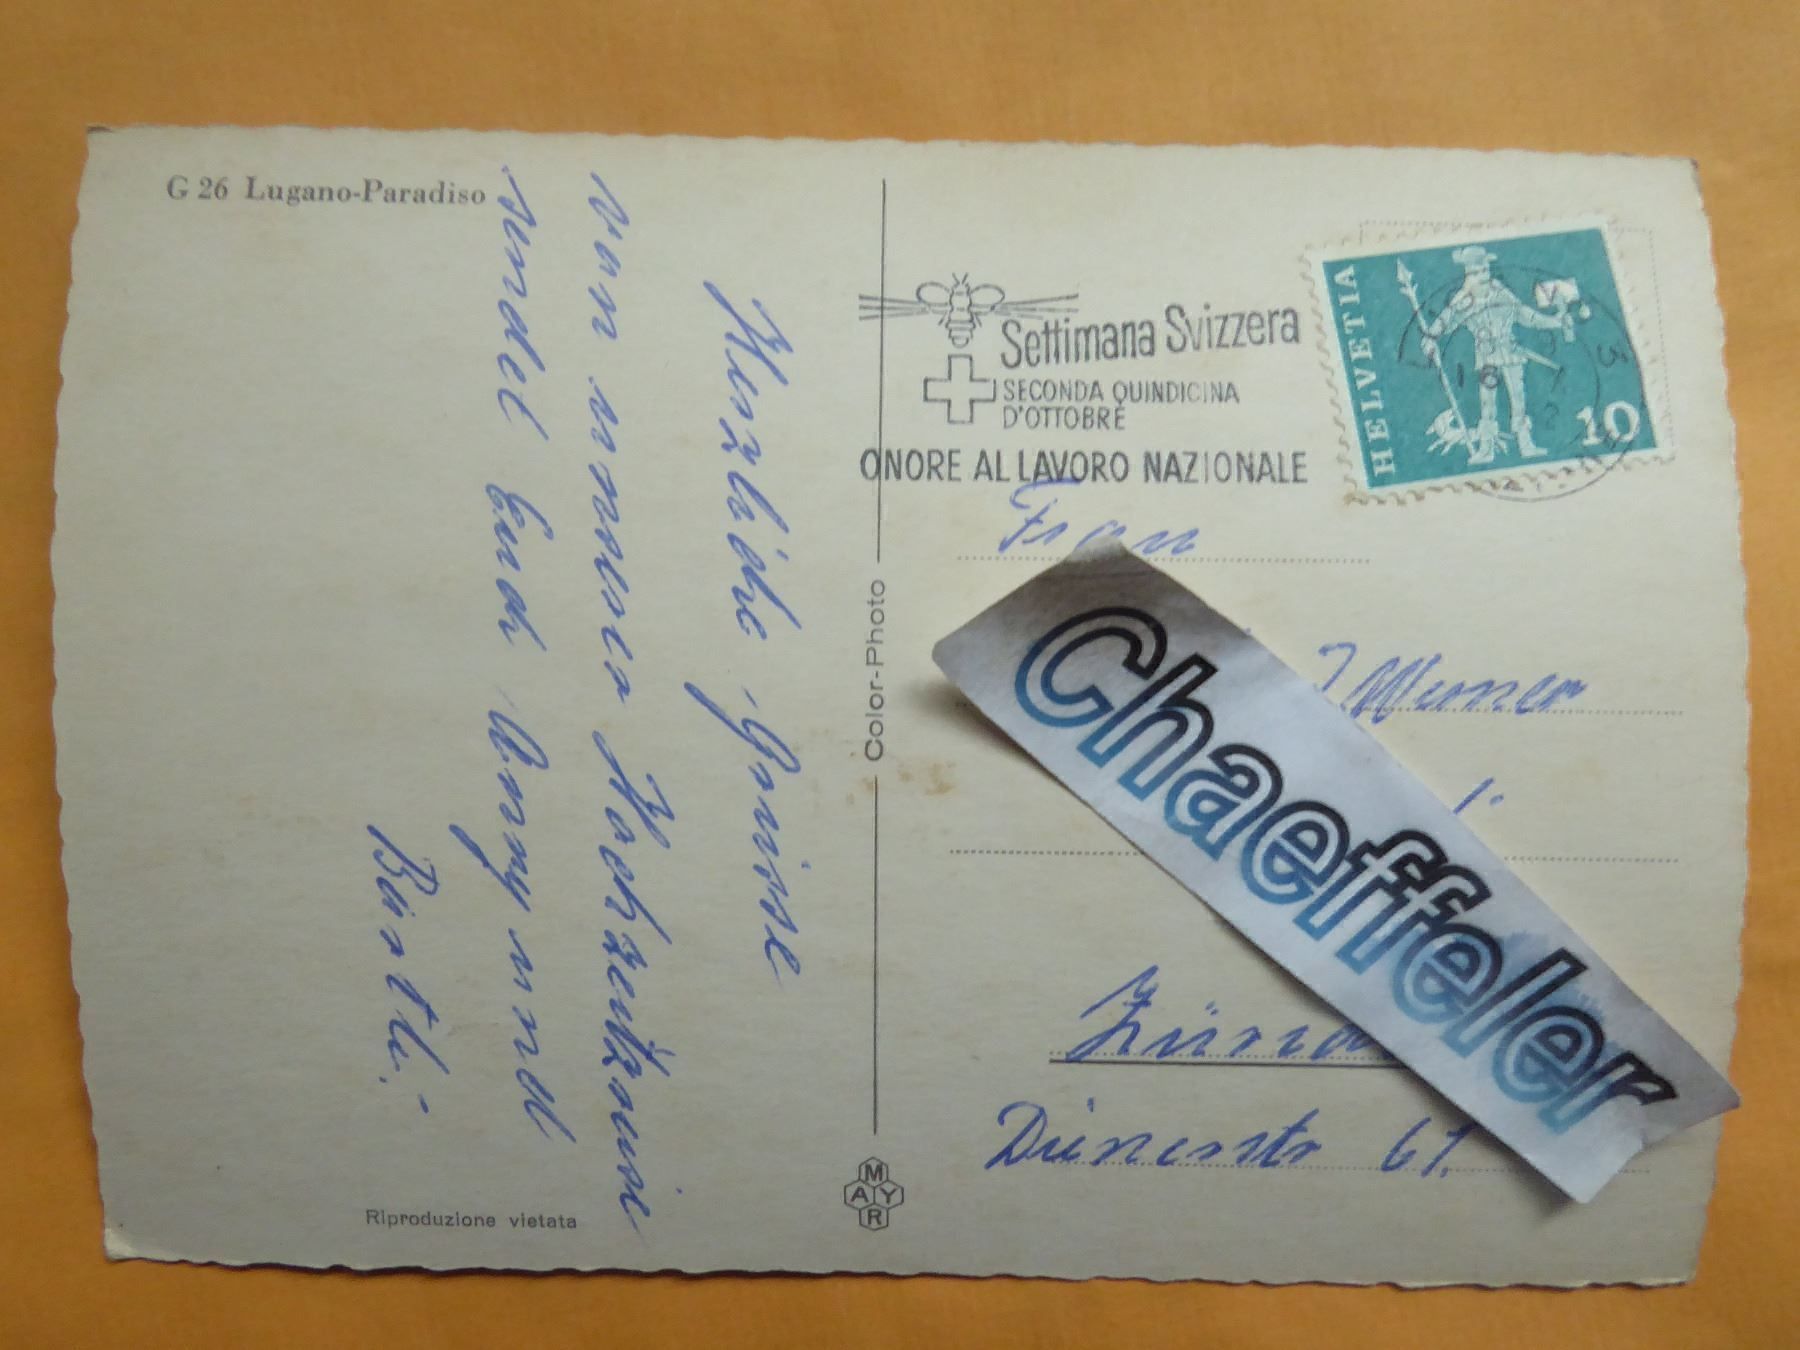 G 26 Lugano-Paradiso
Herzliche Grüsse
von unserer Hochzeitsreise
sendet Euch Anny und
Bärtli.-
Riproduzione vietata
Color-Photo
MAYR
Settimana Svizzera
SECONDA QUINDICINA
D'OTTOBRE
ONORE AL LAVORO NAZIONALE
HELVETIA
10
Frau
Zürich
61.
Chaeffeler